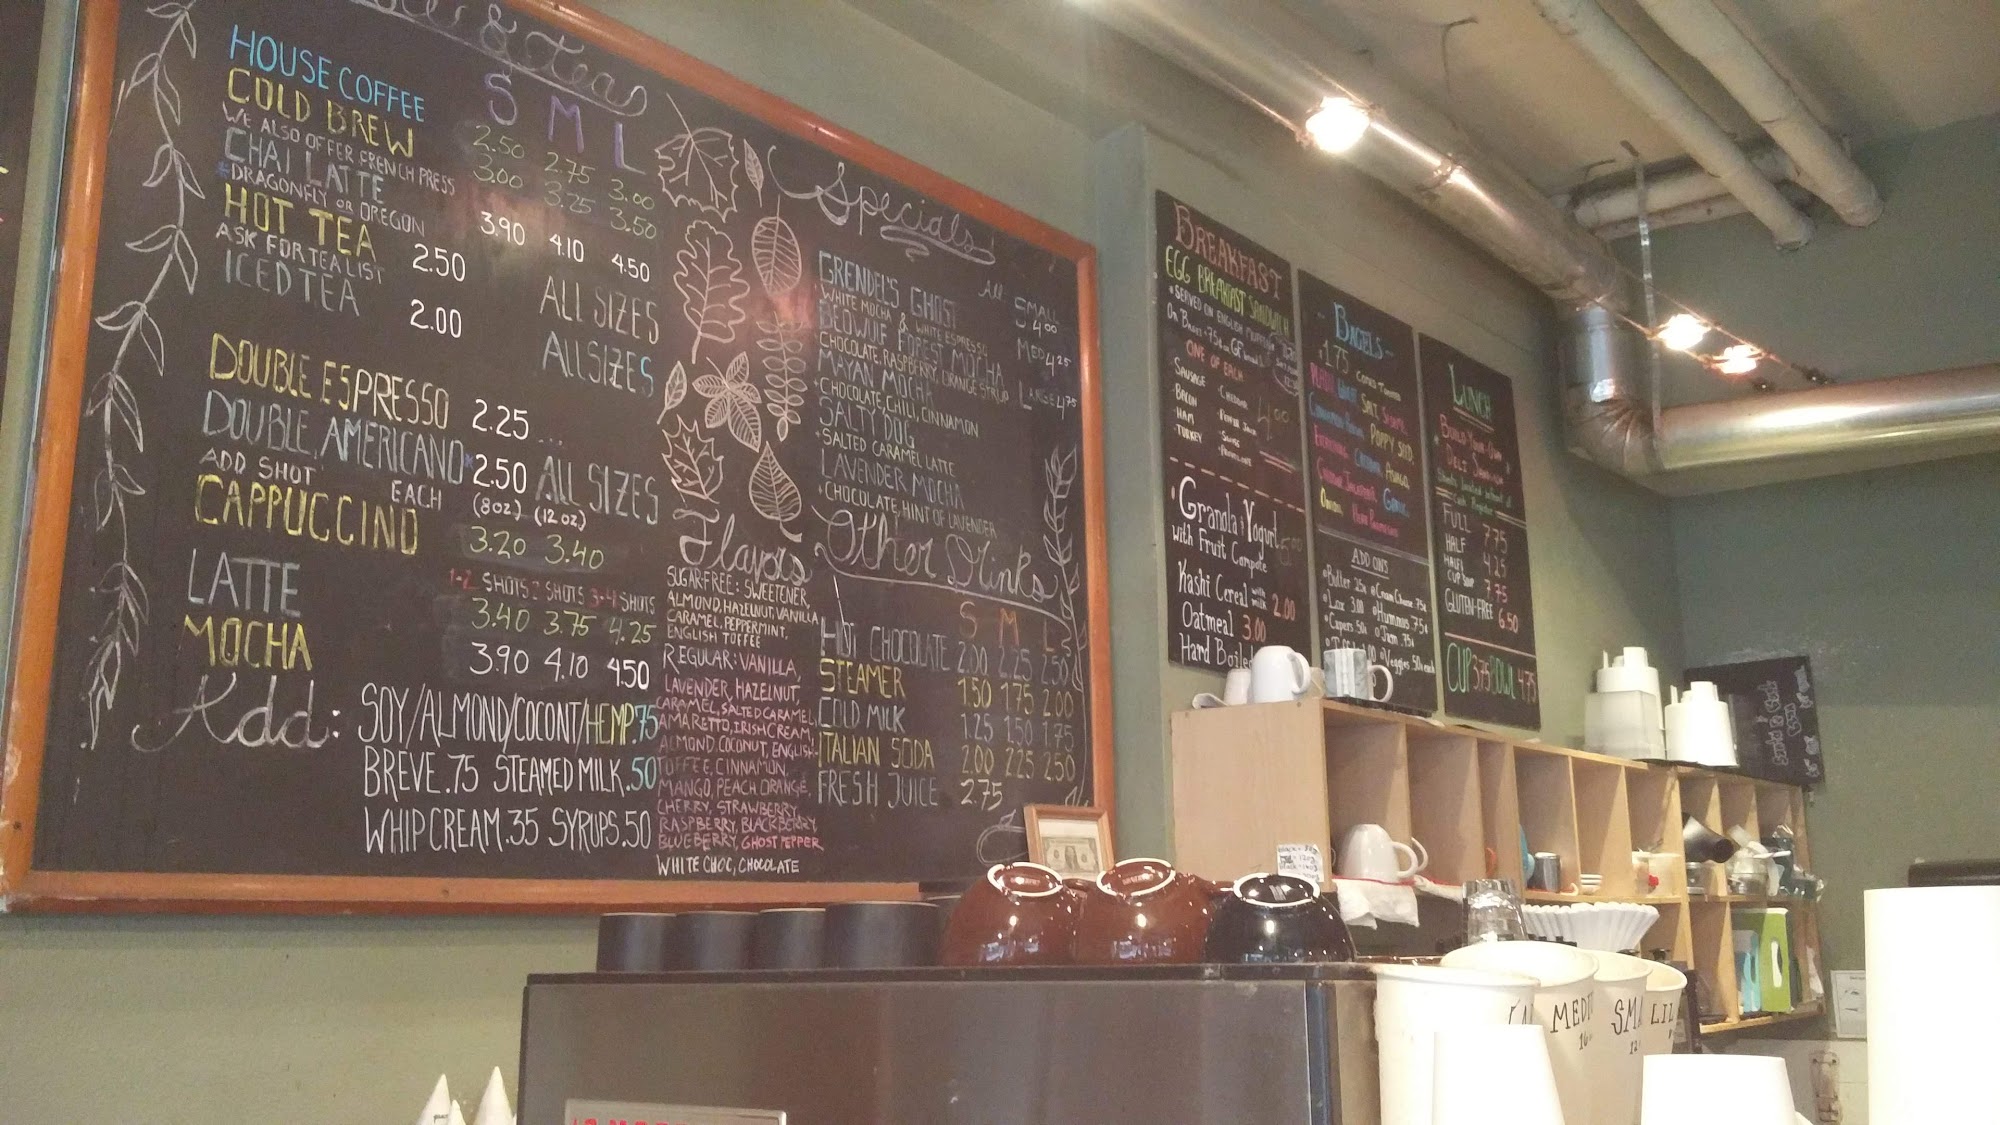 & Teas
S M L
HOUSE COFFEE 2.50 2.75 3.00
COLD BREW 3.00 3.25 3.50
WE ALSO OFFER FRENCH PRESS
CHAI LATTE 3.90 4.10 4.50
*DRAGONFLY OR OREGON
HOT TEA 2.50 ALL SIZES
ASK FOR TEA LIST
ICED TEA 2.00 ALL SIZES
DOUBLE ESPRESSO 2.25 ...
DOUBLE AMERICANO* 2.50 ALL SIZES
ADD SHOT EACH (8oz.) (12 oz.)
CAPPUCCINO 3.20 3.40
1-2 SHOTS 2 SHOTS 3-4 SHOTS
LATTE 3.40 3.75 4.25
MOCHA 3.90 4.10 4.50
Add: SOY/ALMOND/COCONT/HEMP.75
BREVE.75 STEAMED MILK.50
WHIP CREAM.35 SYRUPS.50
Flavors
SUGAR-FREE: SWEETENER,
ALMOND, HAZELNUT, VANILLA
CARAMEL, PEPPERMINT,
ENGLISH TOFFEE
REGULAR: VANILLA,
LAVENDER, HAZELNUT,
CARAMEL, SALTED CARAMEL,
AMARETTO, IRISH CREAM,
ALMOND, COCONUT, ENGLISH-
TOFFEE, CINNAMON,
MANGO, PEACH ORANGE,
CHERRY, STRAWBERRY,
RASPBERRY, BLACKBERRY,
BLUEBERRY, GHOST PEPPER
WHITE CHOC, CHOCOLATE
Specials!
All SMALL 4.00
MED 4.25
LARGE 4.75
GRENDEL'S GHOST
WHITE MOCHA & WHITE ESPRESSO
BEOWULF FOREST MOCHA
CHOCOLATE, RASPBERRY, ORANGE SYRUP
MAYAN MOCHA
*CHOCOLATE, CHILI, CINNAMON
SALTY DOG
*SALTED CARAMEL LATTE
LAVENDER MOCHA
*CHOCOLATE, HINT OF LAVENDER
Other Drinks
S M L
HOT CHOCOLATE 2.00 2.25 2.50
STEAMER 1.50 1.75 2.00
COLD MILK 1.25 1.50 1.75
ITALIAN SODA 2.00 2.25 2.50
FRESH JUICE 2.75
BREAKFAST
EGG BREAKFAST SANDWICH
*SERVED ON ENGLISH MUFFIN
ONE OF EACH
SAUSAGE
BACON
HAM
TURKEY
CHEDDAR
PEPPER JACK
SWISS
PROVOLONE
4.00
Granola & Yogurt
with Fruit Compote
Kashi Cereal with milk 2.00
Oatmeal 3.00
Hard Boiled
BAGELS
1.75
PLAIN WHEAT SALT SESAME
CINNAMON RAISIN POPPY SEED
EVERYTHING CHEDDAR ASIAGO
CHEDDAR JALAPENO GARLIC
ONION
ADD ONS
Butter 25¢ Cream Cheese .75¢
Lox 3.00 Hummus .75¢
Capers 50¢ Jam .75¢
Veggies 50¢ each
LUNCH
BUILD YOUR OWN
DELI SANDWICH
FULL 7.75
HALF 4.25
HALF/
CUP SOUP 7.75
GLUTEN-FREE 6.50
CUP 3.75 BOWL 4.75
MEDI
SMA
LIL